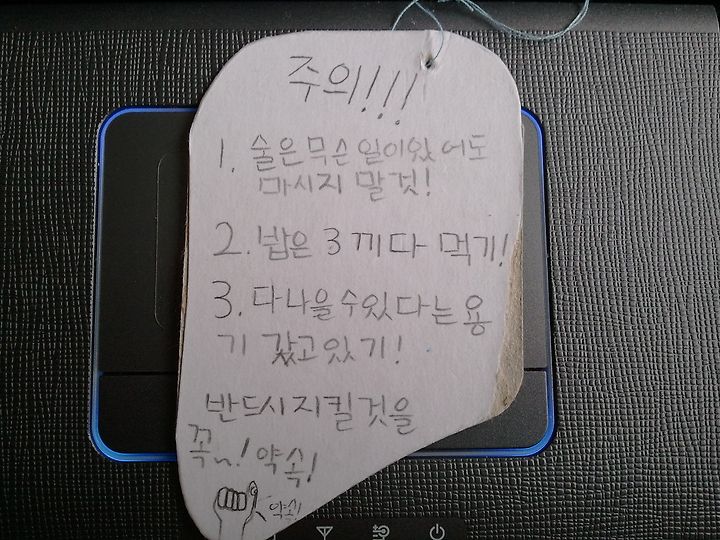 주의!!!
1. 술은 무슨 일이있어도
마시지 말것!
2. 밥은 3끼 다 먹기!
3. 다나을수있다는 용
기 갖고있기!
반드시지킬것을
꼭~! 약속!
약속!